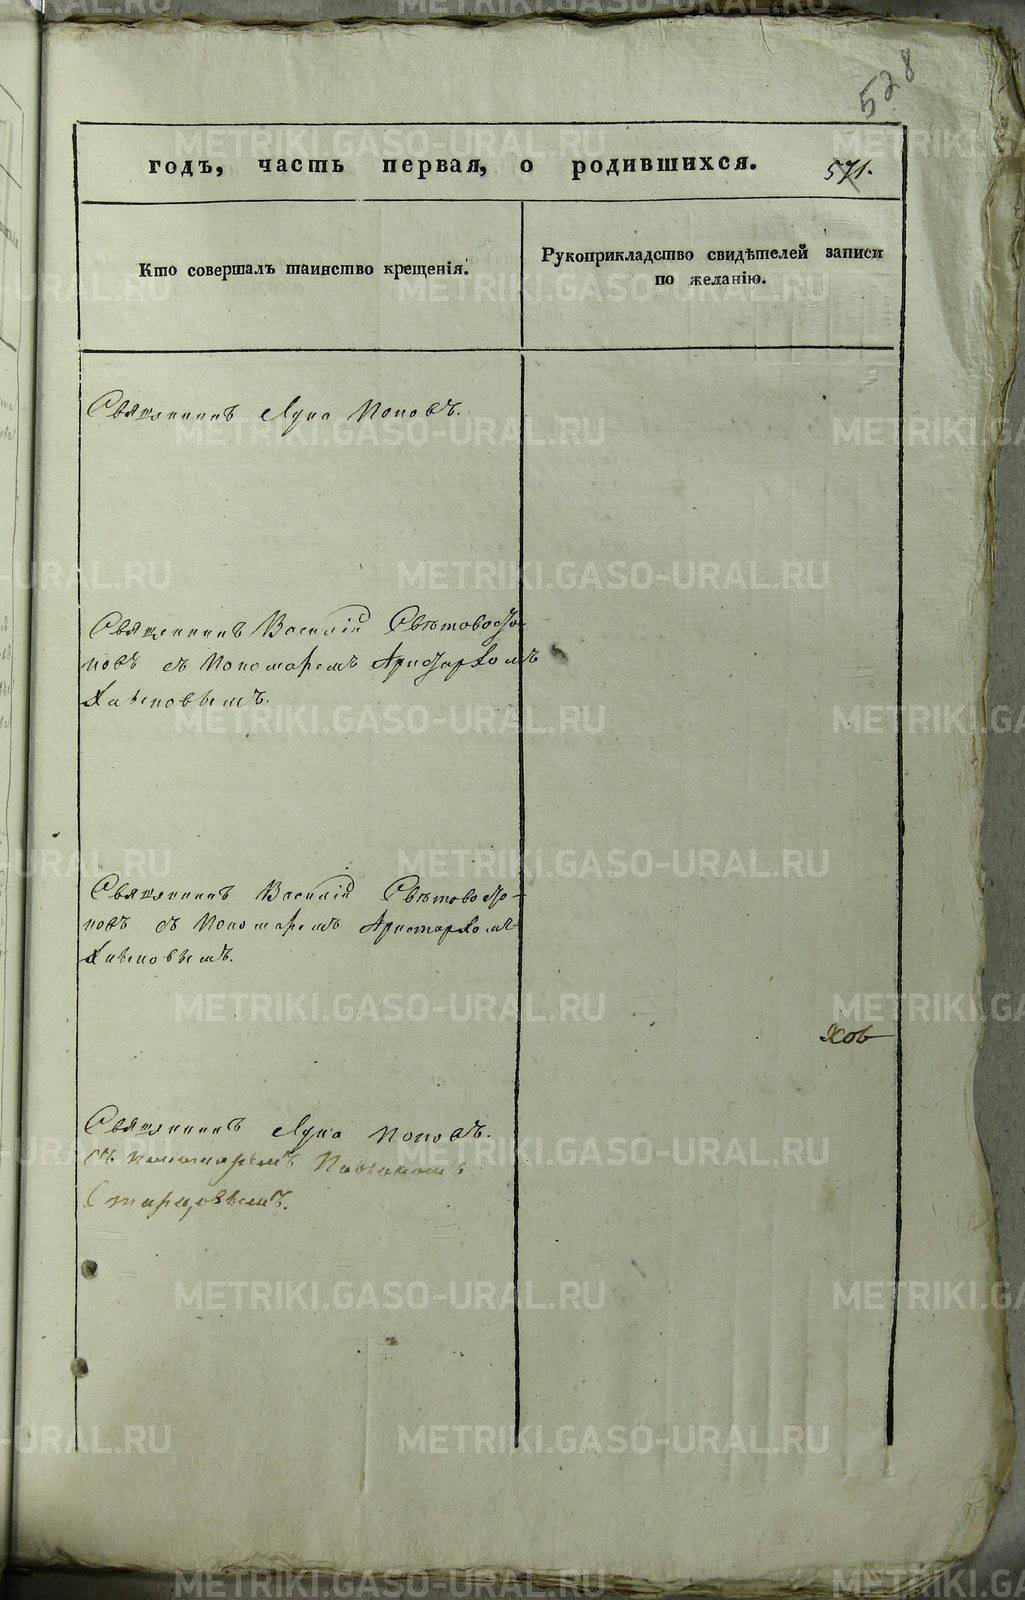 528
годъ, часть первая, о родившихся. 571.
Кто совершалъ таинство крещенія.
Рукоприкладство свидѣтелей записи
по желанію.
Священникъ Лука Поповъ.
Священникъ Василій Свѣтовостро-
новъ съ Пономаремъ Аристархомъ
Священникъ Василій Свѣтовостро-
новъ съ Пономаремъ Аристархомъ
хов
Священникъ Лука Поповъ.
съ пономаремъ
Старцовымъ.
METRIKI.GASO-URAL.RU